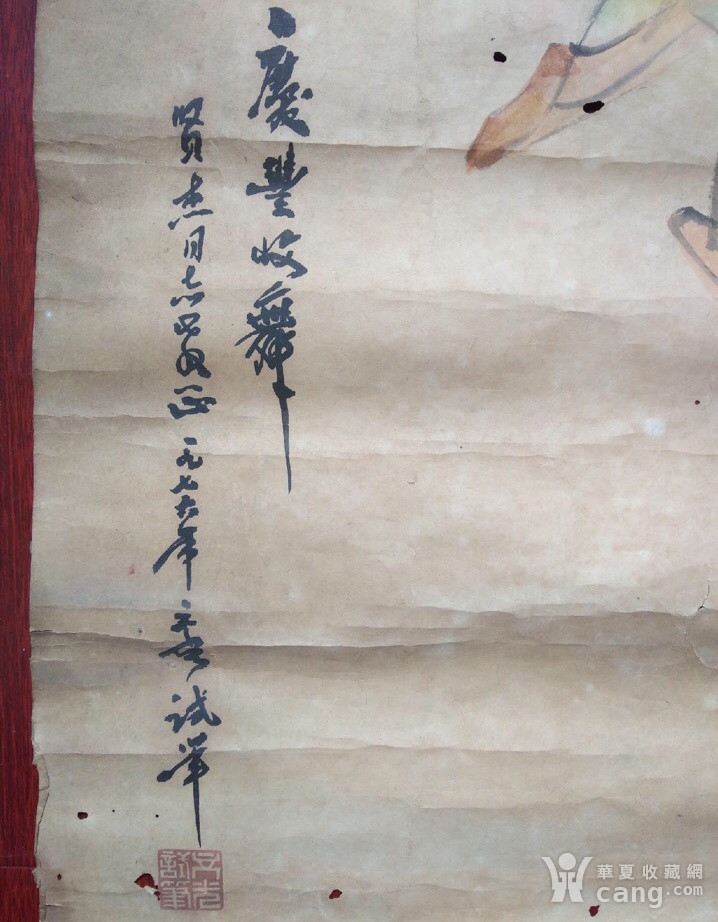 慶豐收舞
賢杰同志正 一九七六年試筆
華夏收藏網
cang.com